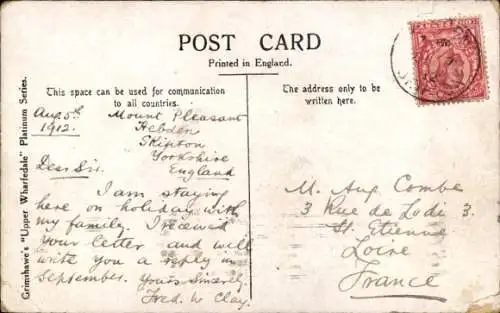 POST CARD
Printed in England.
This space can be used for communication
to all countries.
The address only to be
written here.
Grimshawe's "Upper Wharfedale" Platinum Series.
Aug 5th
1912.
Mount Pleasant
Hebden
Skipton
Yorkshire
England
Dear Sir.
I am staying
here on holiday with
my family. I received
your letter and will
write you a reply in
September. Yours Sincerely
Fred. W Clay.
M. Aug Combe
3 Rue de Lodi 3.
St. Etienne
Loire
France